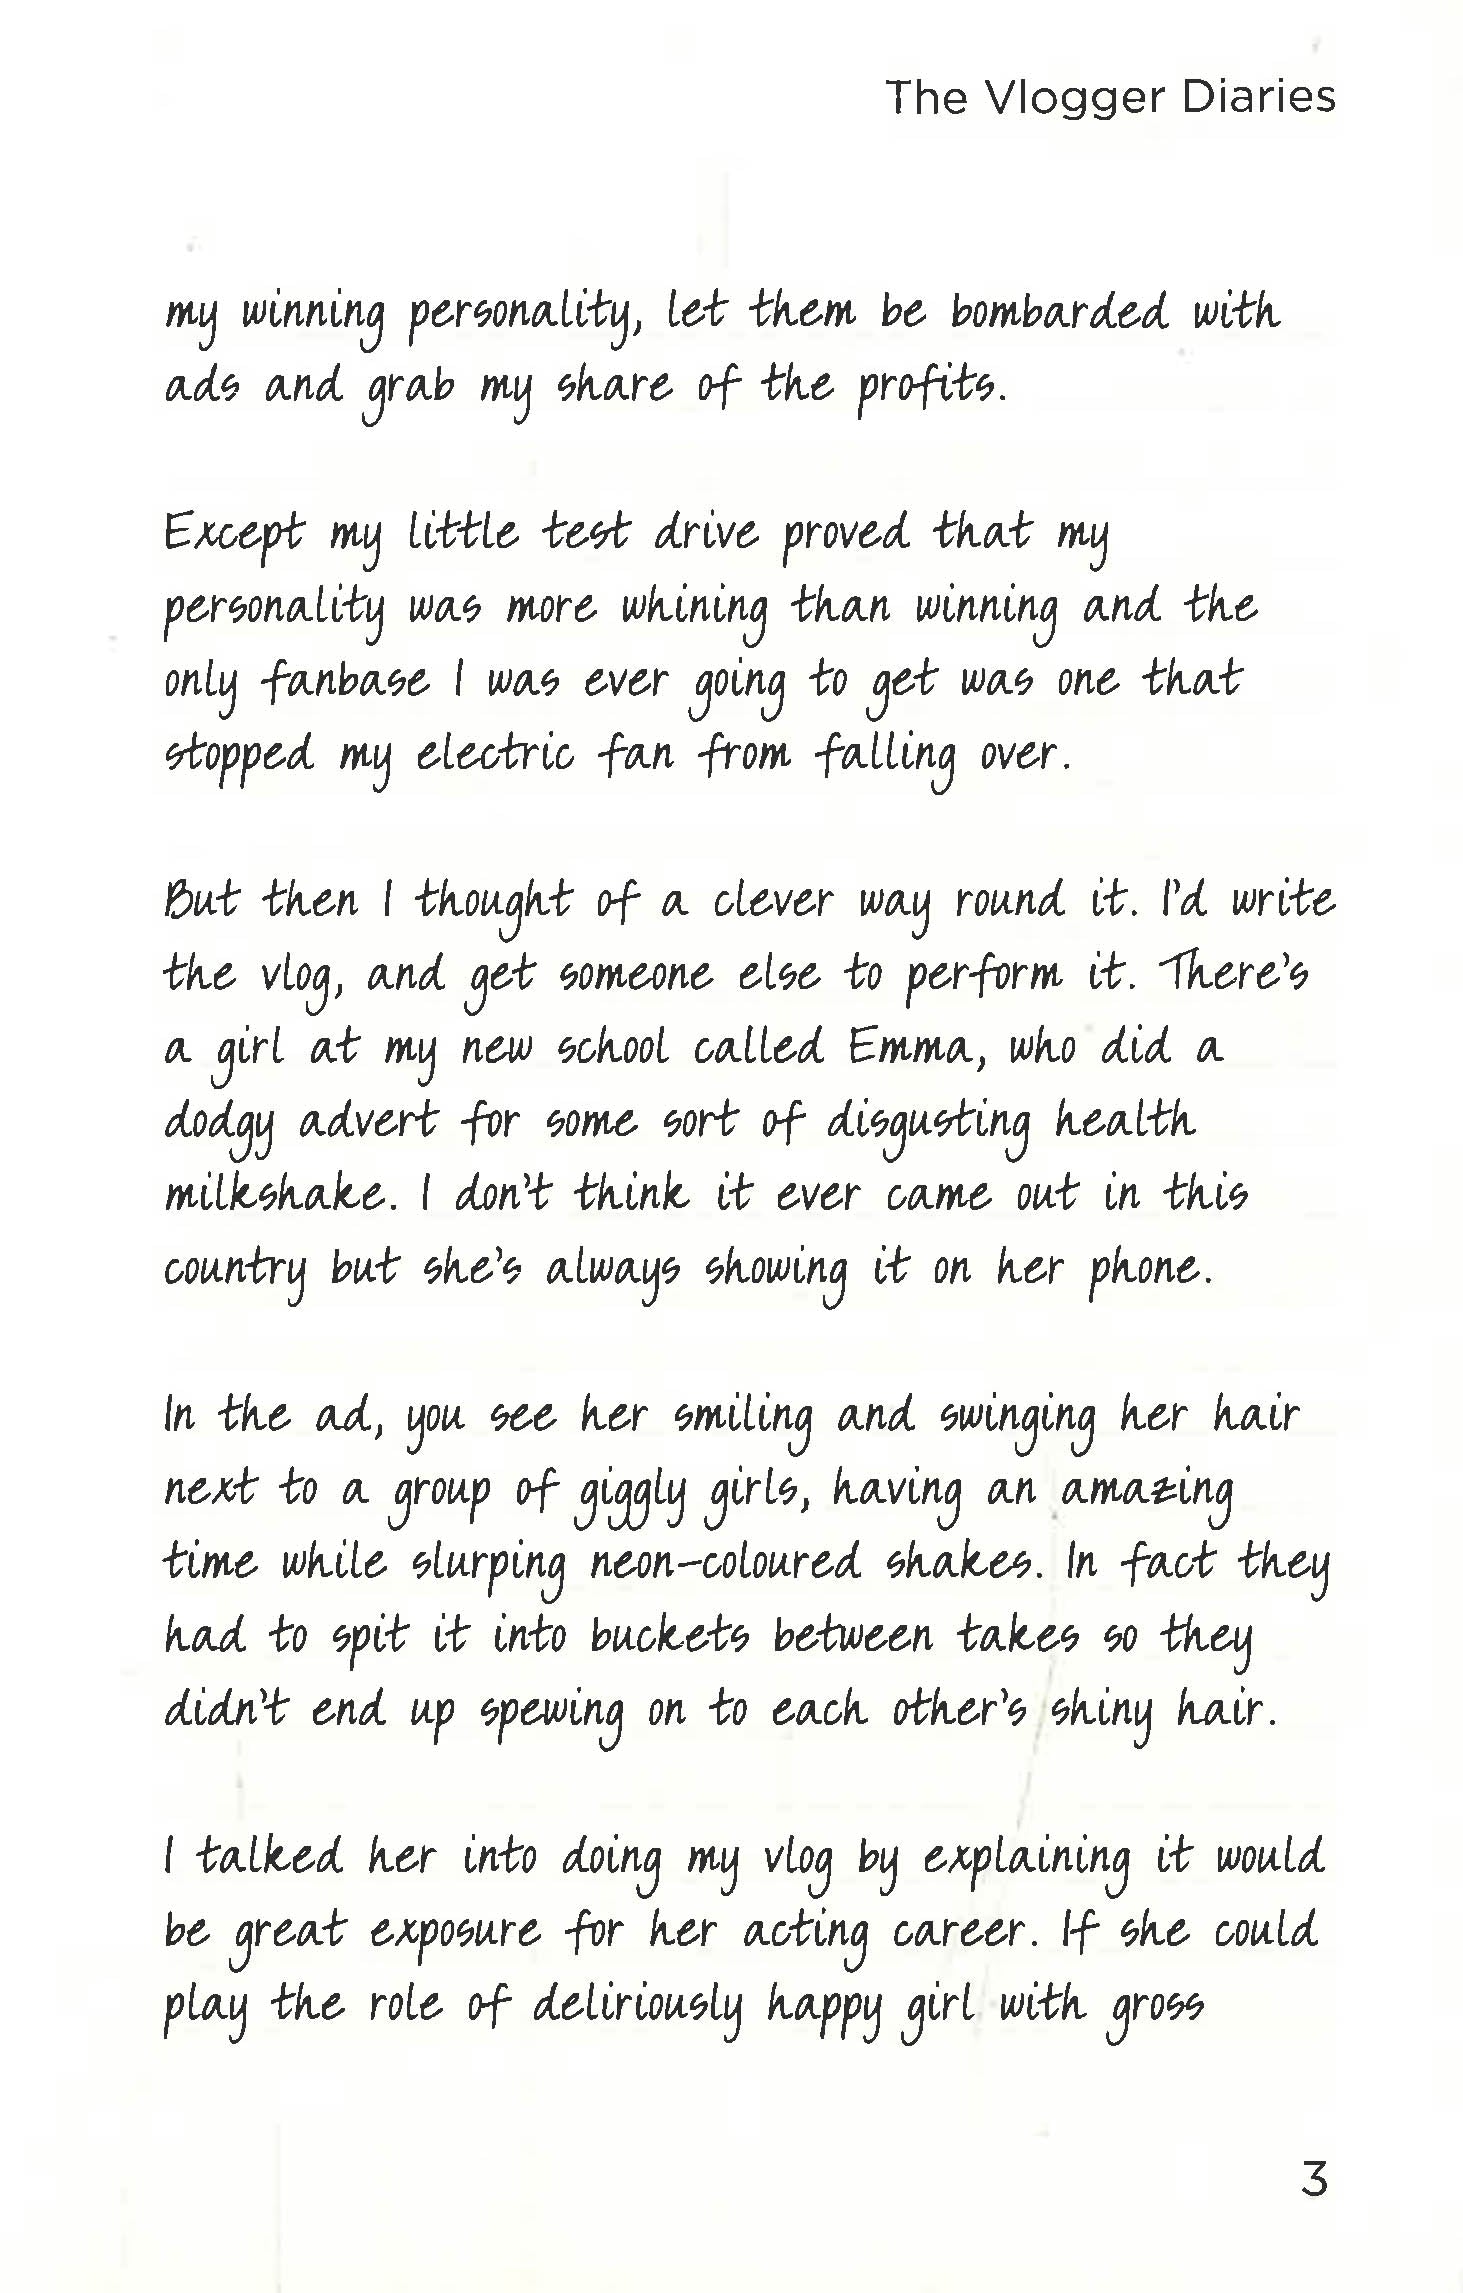 The Vlogger Diaries
my winning personality, let them be bombarded with
ads and grab my share of the profits.
Except my little test drive proved that my
personality was more whining than winning and the
only fanbase I was ever going to get was one that
stopped my electric fan from falling over.
But then I thought of a clever way round it. I'd write
the vlog, and get someone else to perform it. There's
a girl at my new school called Emma, who did a
dodgy advert for some sort of disgusting health
milkshake. I don't think it ever came out in this
country but she's always showing it on her phone.
In the ad, you see her smiling and swinging her hair
next to a group of giggly girls, having an amazing
time while slurping neon-coloured shakes. In fact they
had to spit it into buckets between takes so they
didn't end up spewing on to each other's shiny hair.
I talked her into doing my vlog by explaining it would
be great exposure for her acting career. If she could
play the role of deliriously happy girl with gross
3